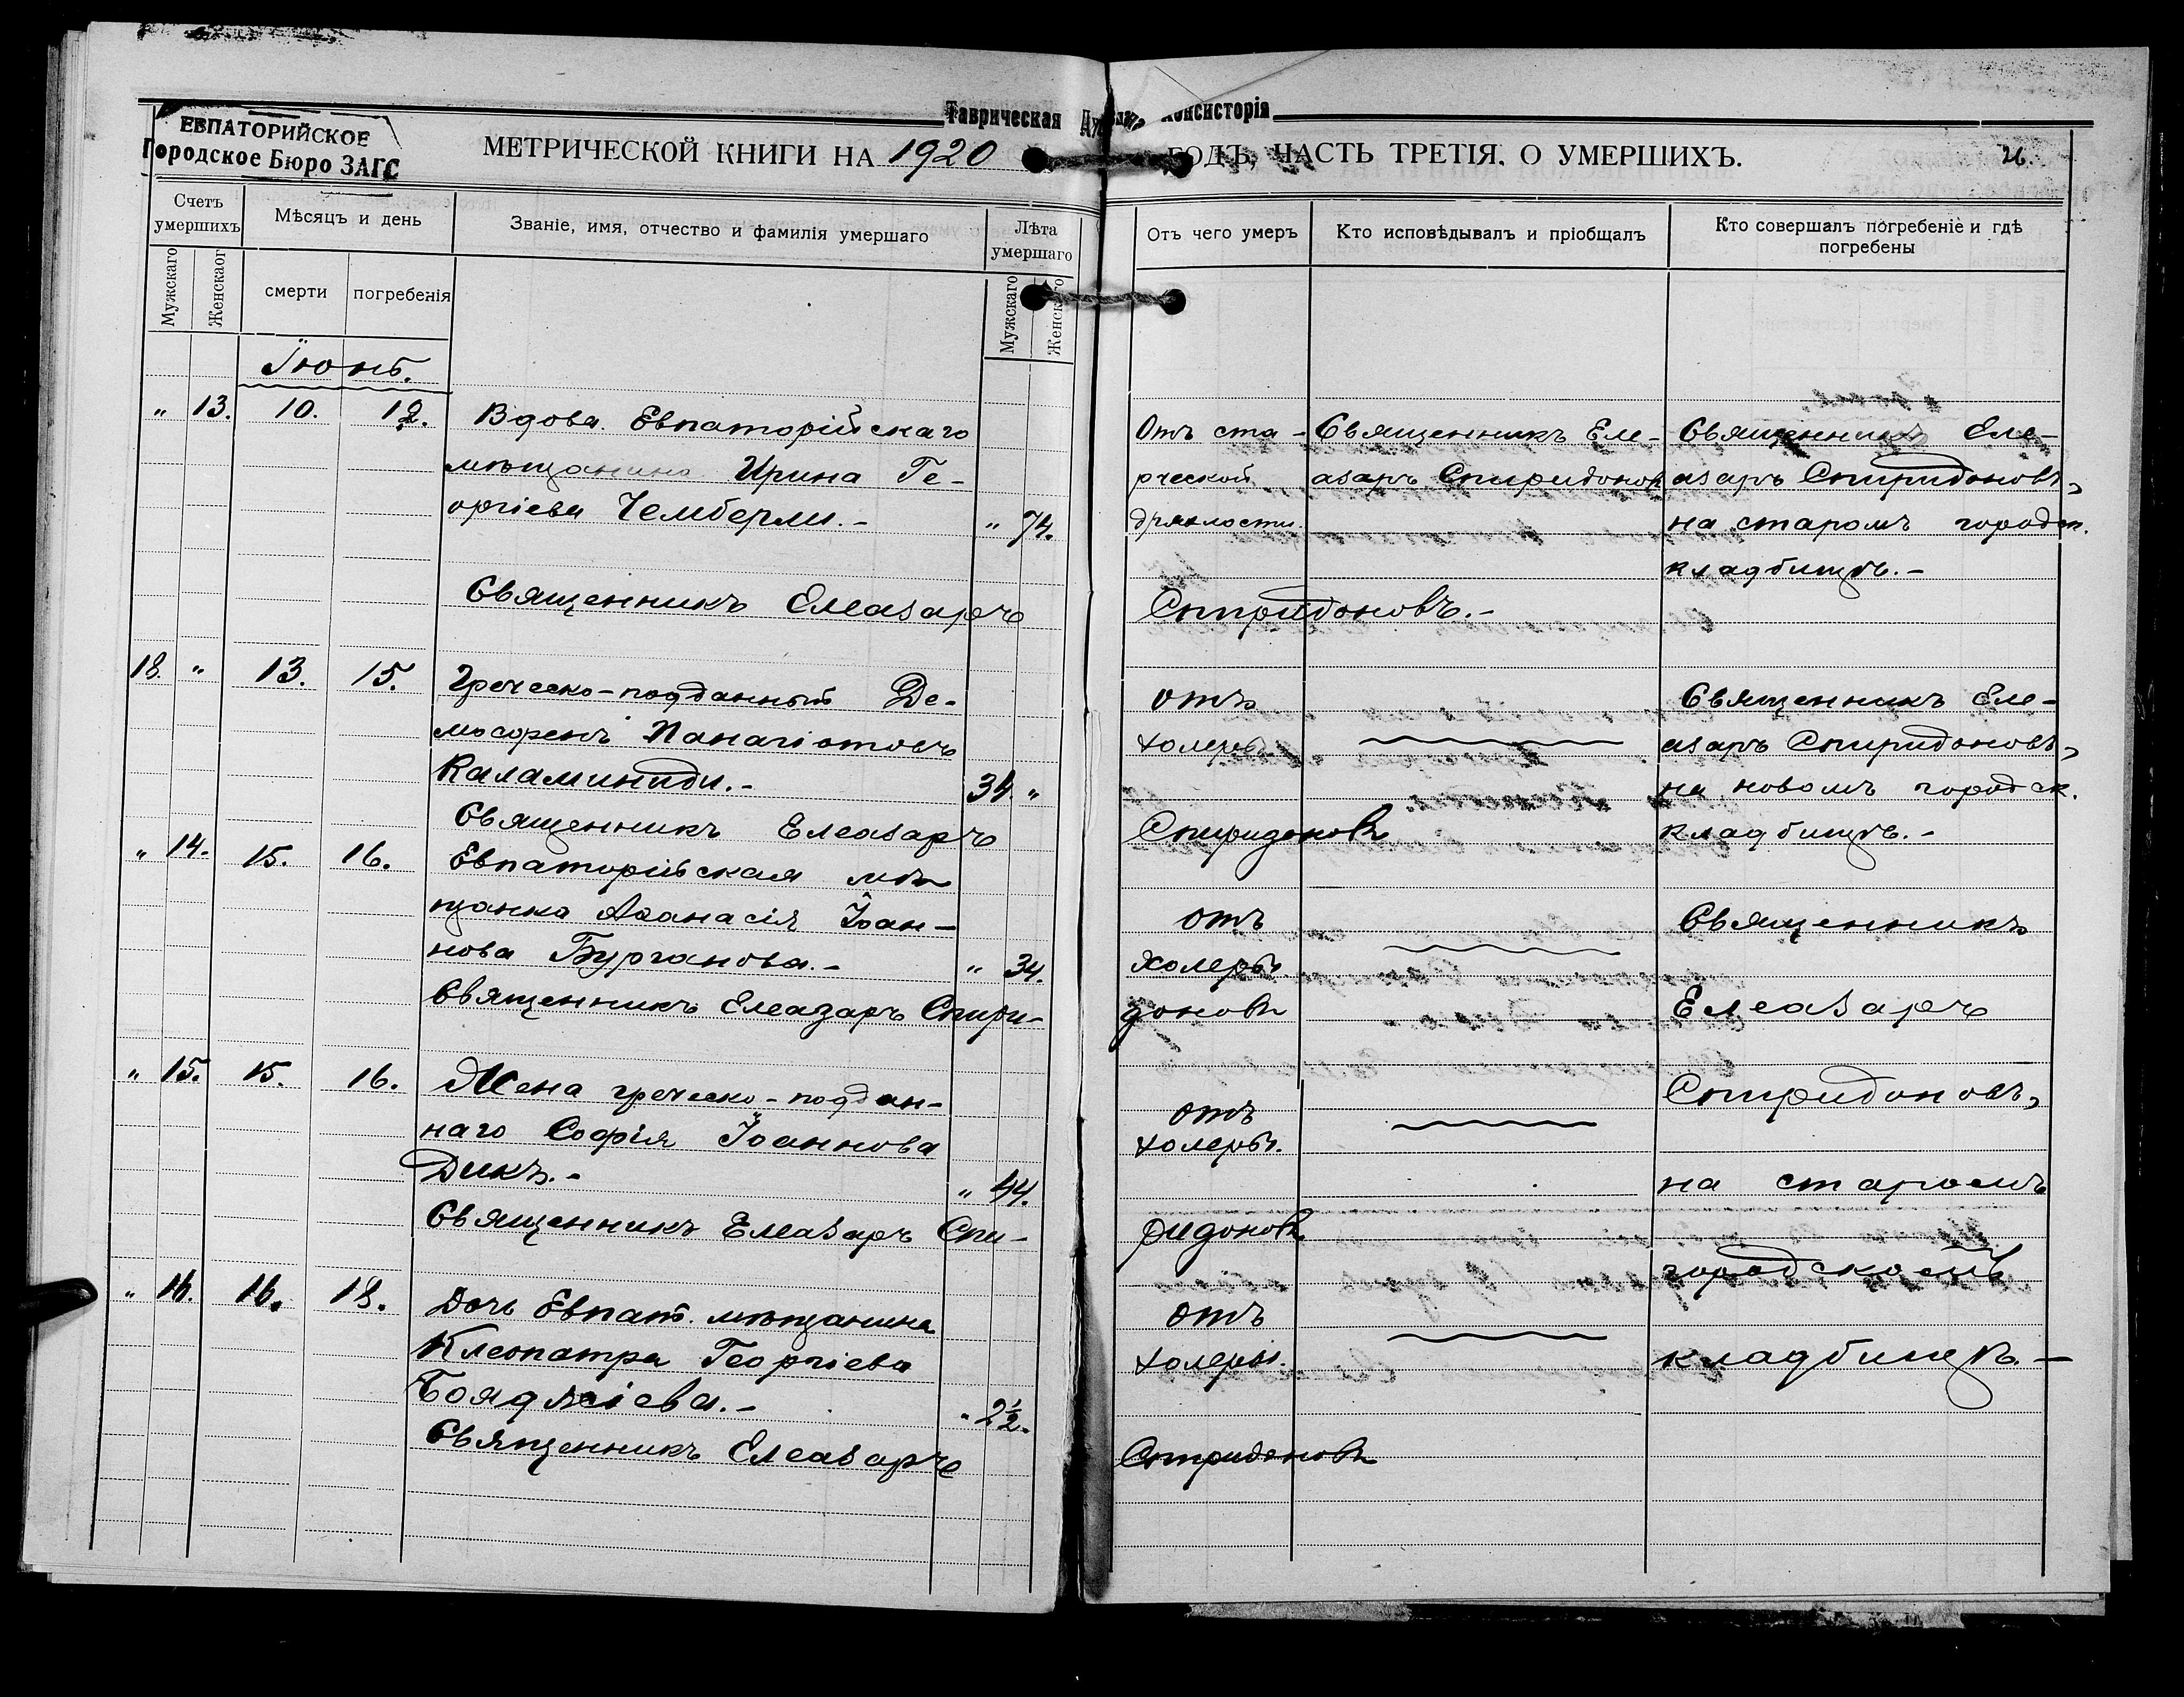 Таврическая Консисторія
ЕВПАТОРИЙСКОЕ
Городское Бюро ЗАГС
МЕТРИЧЕСКОЙ КНИГИ НА 1920 ГОДЪ, ЧАСТЬ ТРЕТІЯ, О УМЕРШИХЪ.
26.
Счетъ умершихъ
Мѣсяцъ и день
Званіе, имя, отчество и фамилія умершаго
Лѣта умершаго
Отъ чего умеръ
Кто исповѣдывалъ и пріобщалъ
Кто совершалъ погребеніе и гдѣ погребены
Мужскаго
Женскаог
смерти
погребенія
Мужскаго
Женскаго
Іюнь.
" 13. 10. 12.
Вдова Евпаторійскаго
мѣщанина Ирина Ге-
оргіева Чемберли.-
" 74.
Отъ ста-
рческой
дряхлости.
Священникъ Еле-
азаръ Спиридоновъ
Священникъ Еле-
азаръ Спиридоновъ,
на старомъ городск.
кладбищѣ.-
Священникъ Елеазаръ Спиридоновъ.-
18. " 13. 15.
Греческо-подданный Де-
мосфенъ Панагіотовъ
Каламиниди.-
34. "
отъ
холеры
Священникъ Еле-
азаръ Спиридоновъ,
на новомъ городск.
кладбищѣ.-
Священникъ Елеазаръ Спиридоновъ
" 14. 15. 16.
Евпаторійская мѣ
щанка Аѳанасія Іоан-
нова Бурганова.-
" 34.
отъ
холеры.
Священникъ Елеазаръ Спири-
доновъ
" 15. 15. 16.
Жена греческо-поддан-
наго Софія Іоаннова
Дикъ.-
" 44.
отъ
холеры.
Священникъ Елеазаръ Спи-
ридоновъ
" 16. 16. 18.
Дочь Евпат. мѣщанина
Клеопатра Георгіева
Бояджіева.-
" 2½.
отъ
холеры.
Священникъ
Елеазаръ
Спиридоновъ,
на старомъ
городскомъ
кладбищѣ.-
Священникъ Елеазаръ Спиридоновъ